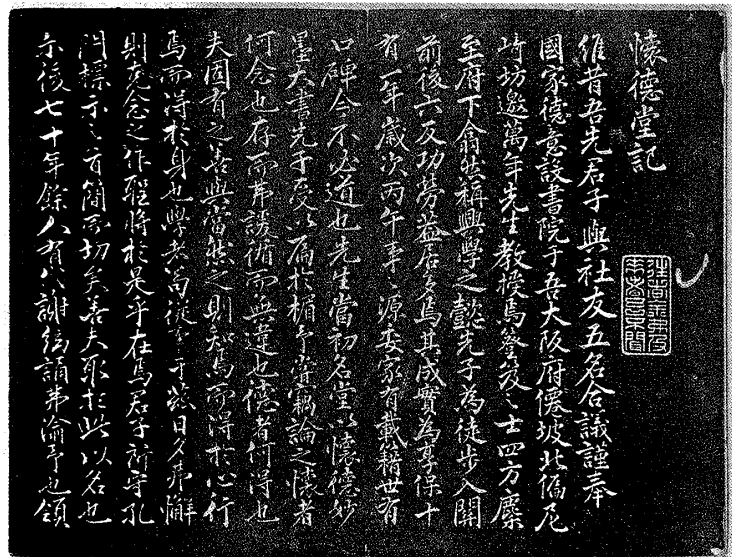 懷德堂記
維昔吾先君子與社友五名合議謹奉
國家德意設書院于吾大阪府僊坡北偏尼
崎坊邀萬年先生教授焉登笈之士四方麇
至府下翕然稱興學之懿先子為徒步入關
前後六反功勞益居多焉其成實為享保十
有一年歲次丙午事之源委家有載籍世有
口碑今不必道也先生當初名堂以懷德妙
墨大書先子受以扁於楣予嘗竊論之懷者
何念也存而弗諼循而無違也德者何得也
夫固有之善與當然之則知焉而得於心行
焉而得於身也學者尚從事于茲日夕弗懈
則克念之作聖將於是乎在焉君子所守孔
門標示之言簡而切矣善夫取於此以名也
尓後七十年餘人有代謝絃誦弗渝予也領